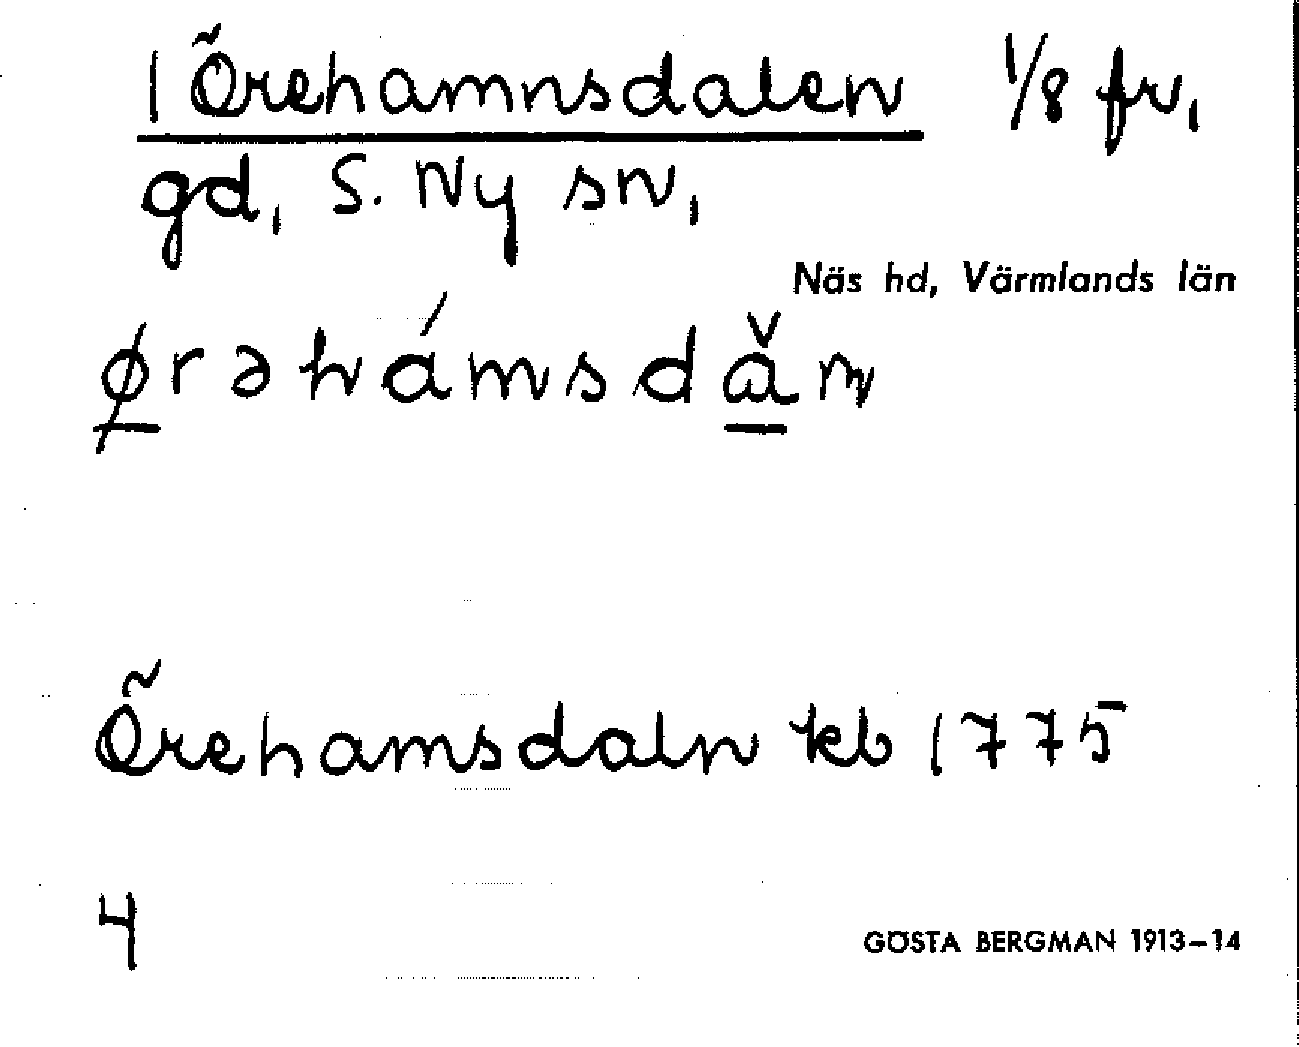 1 Örehamnsdalen 1/8 fr,
gd, S. Ny sn,
Näs hd, Värmlands län
ørəhámsdǎn
Örehamsdaln kb 1775
4
GÖSTA BERGMAN 1913–14